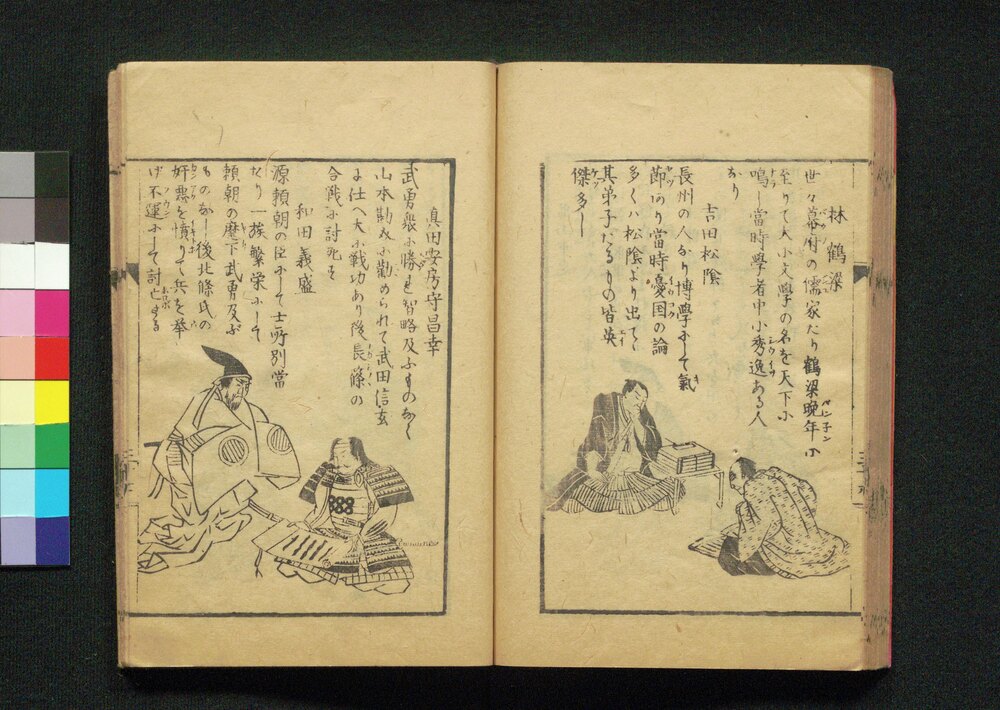 林 鶴梁
世々幕府の儒家たり鶴梁晩年に
至りて大に文學の名を天下に
鳴し當時學者中に秀逸ある人
なり
吉田松陰
長州の人なり博學にて氣
節あり當時憂国の論
多くハ松陰より出て
其弟子たるもの皆英
傑多し
真田安房守昌幸
武勇衆に勝れ智略及ふものなく
山本勘助に勧められて武田信玄
に仕へ大に戦功あり後長篠の
合戦に討死す
和田義盛
源頼朝の臣にして士所別當
なり一族繁栄にして
頼朝の麾下武勇及ぶ
ものなし後北條氏の
奸悪を憤りて兵を挙
げ不運にして討亡さる